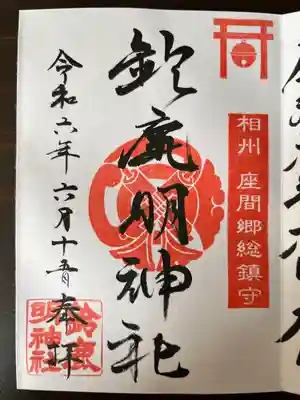 相州 座間郷総鎮守
鈴鹿明神社
令和六年六月十五日奉拝
鈴鹿
明神社